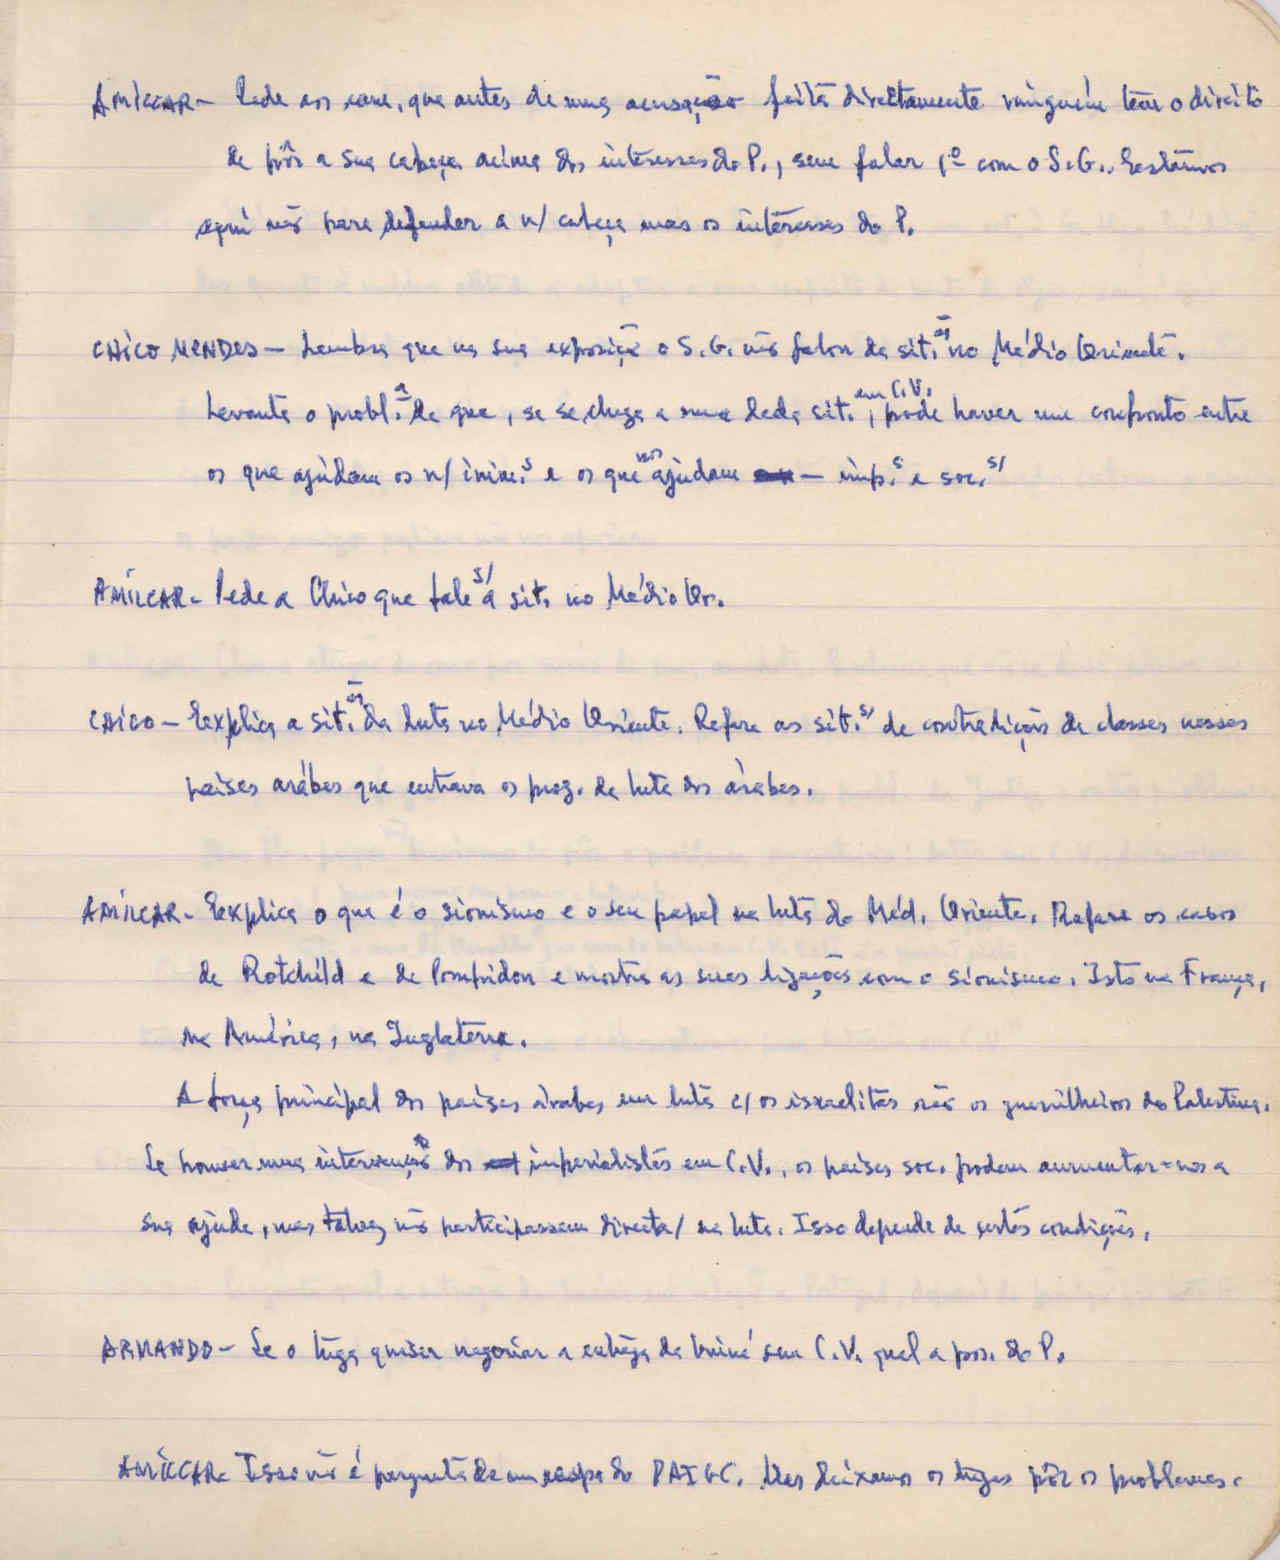 AMÍLCAR - Pede aos cam. que antes de uma acusação feita directamente ninguém tem o direito
de pôr a sua cabeça acima dos interesses do P., sem falar 1º com o S.G.. Estamos
aqui não para defender a n/ cabeça mas os interesses do P.
CHICO MENDES - Lembra que na sua exposição o S.G. não falou da sit.ão no Médio Oriente.
Levanta o probl.a de que, se se chega a uma dada sit. em C.V., pode haver um confronto entre
os que ajudam os n/ inim.s e os que nos ajudam - imp.s e soc.s/
AMÍLCAR - Pede a Chico que fale s/ a sit. no Médio Or.
CHICO - Explica a sit.ão da luta no Médio Oriente. Refere as sit.s/ de contradições de classes nesses
países arábes que entrava os prog. da luta dos árabes.
AMÍLCAR - Explica o que é o sionismo e o seu papel na luta do Méd. Oriente. Refere os casos
de Rotchild e de Pompidou e mostra as suas ligações com o sionismo. Isto na França,
na América, na Inglaterra.
A força principal dos países árabes em luta c/ os israelitas são os guerrilheiros da Palestina.
Se houver uma intervenção dos imperialistas em C.V., os países soc. podem aumentar-nos a
sua ajuda, mas talvez não participassem directa/ na luta. Isso depende de certas condições.
ARMANDO - Se o tuga quiser negociar a entrega da Guiné sem C.V. qual a pos. do P.
AMÍLCAR - Isso não é pergunta de um do PAIGC. Mas deixamos os tugas pôr os problemas.